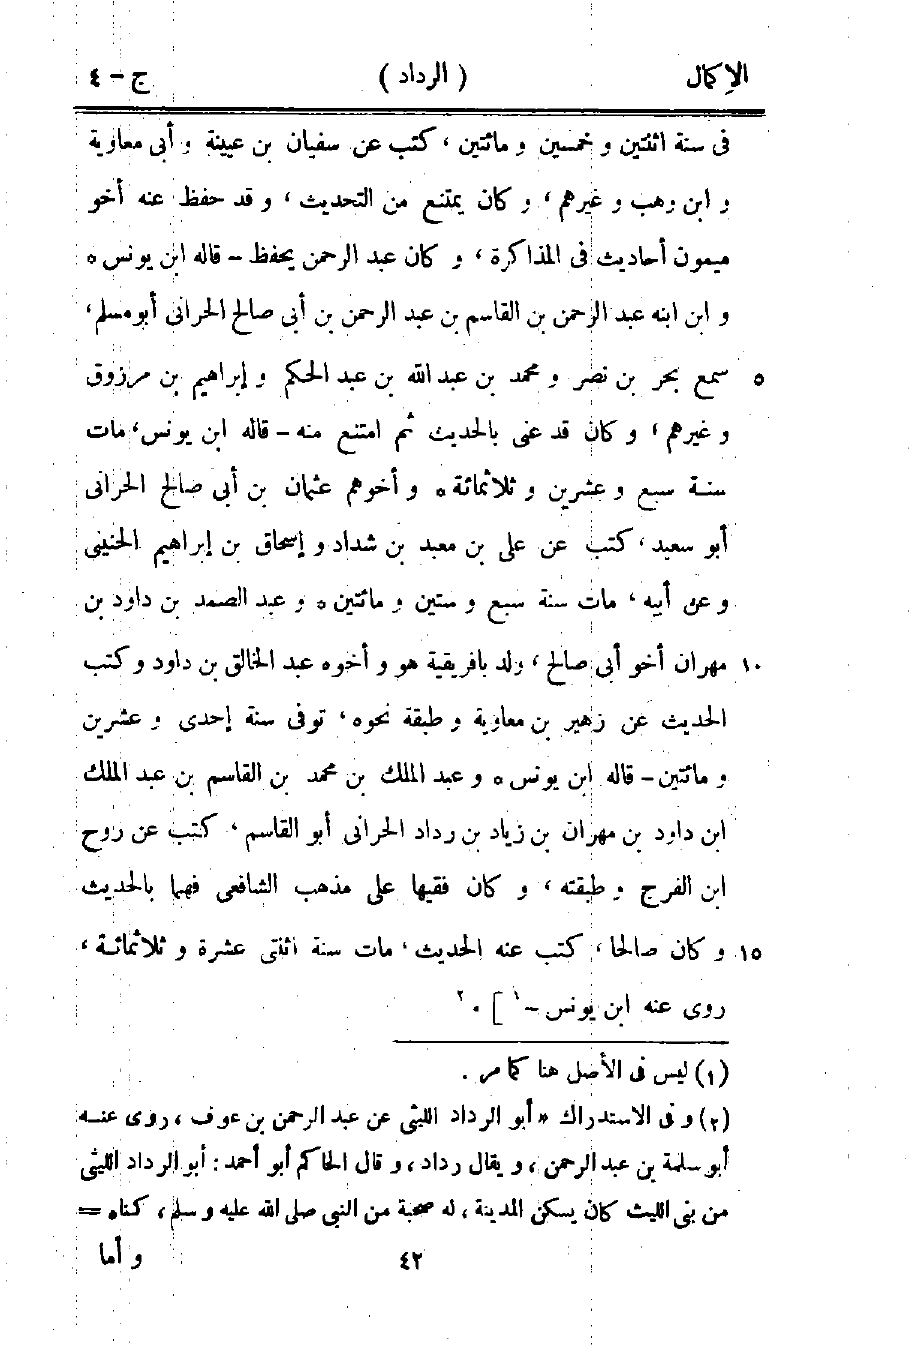 الإكمال ( الرداد ) ج - ٤
فى سنة اثنتين و خمسين و مائتين ، كتب عن سفيان بن عيينة و أبى معاوية
و ابن وهب و غيرهم ، و كان يمتنع من التحديث ، و قد حفظ عنه أخو
ميمون أحاديث فى المذاكرة ، و كان عبد الرحمن يحفظ - قاله ابن يونس ٥
و ابن ابنه عبد الرحمن بن القاسم بن عبد الرحمن بن أبى صالح الحرانى أبو مسلم ،
٥ سمع بحر بن نصر و محمد بن عبد الله بن عبد الحكم و إبراهيم بن مرزوق
و غيرهم ، و كان قد عنى بالحديث ثم امتنع منه - قاله ابن يونس ، مات
سنة سبع و عشرين و ثلاثمائة ٥ و أخوهم عثمان بن أبى صالح الحرانى
أبو سعيد ، كتب عن على بن معبد بن شداد و إسحاق بن إبراهيم الحنينى
و عن أبيه ، مات سنة سبع و ستين و مائتين ٥ و عبد الصمد بن داود بن
١٠ مهران أخو أبى صالح ، ولد بافريقية هو و أخوه عبد الخالق بن داود و كتب
الحديث عن زهير بن معاوية و طبقة نحوه ، توفى سنة إحدى و عشرين
و مائتين - قاله ابن يونس ٥ و عبد الملك بن محمد بن القاسم بن عبد الملك
ابن داود بن مهران بن زياد بن رداد الحرانى أبو القاسم ، كتب عن روح
ابن الفرج و طبقته ، و كان فقيها على مذهب الشافعى فهما بالحديث
١٥ و كان صالحا ، كتب عنه الحديث ، مات سنة اثنتى عشرة و ثلاثمائة ،
روى عنه ابن يونس - ١ ] . ٢
(١) ليس فى الأصل هنا كما مر .
(٢) و فى الاستدراك « أبو الرداد الليثى عن عبد الرحمن بن عوف ، روى عنه
أبو سلمة بن عبد الرحمن ، و يقال رداد ، و قال الحاكم أبو أحمد : أبو الرداد الليثى
من بنى الليث كان يسكن المدينة ، له صحبة من النبى صلى الله عليه و سلم ، كناه =
٤٢ و أما